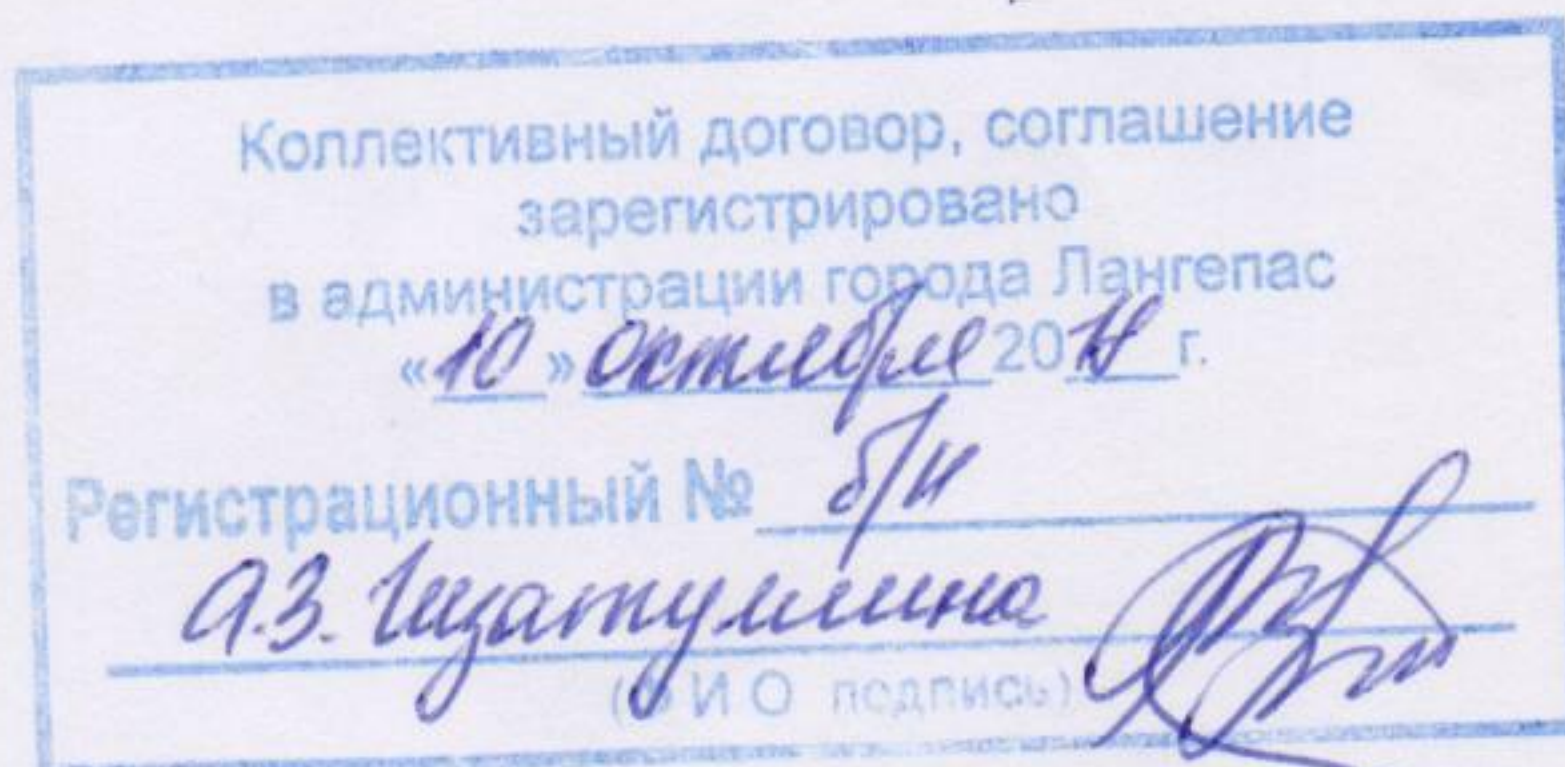 Коллективный договор, соглашение
зарегистрировано
в администрации города Лангепас
«10» октября 20 г.
Регистрационный № б/н
А.З. Гизатуллина
(Ф И О подпись)